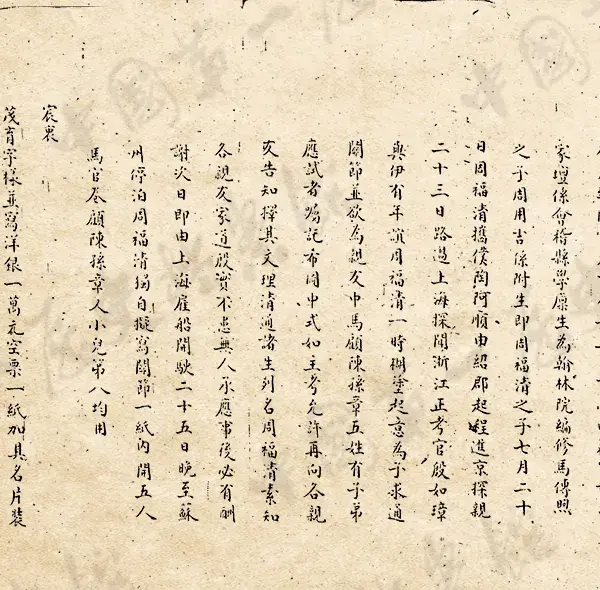 家壇係會稽縣學廩生為翰林院編修馬傳煦
之子周用吉係附生即周福清之子七月二十
日周福清攜僕陶阿順由紹郡起程進京探親
二十三日路過上海探聞浙江正考官殷如璋
與伊有年誼周福清一時糊塗起意為子求通
關節並欲為親友中馬顧陳孫章五姓有子弟
應試者囑託布圖中式如主考允許再向各親
友告知擇其文理清通諸生列名周福清素知
各親友家道殷實不患無人承應事後必有酬
謝次日即由上海雇船開駛二十五日晚至蘇
州停泊周福清獨自擬寫關節一紙內開五人
馬官卷顧陳孫章人小兒第八均用
宸衷
茂育字樣並寫洋銀一萬元空票一紙加具名片裝